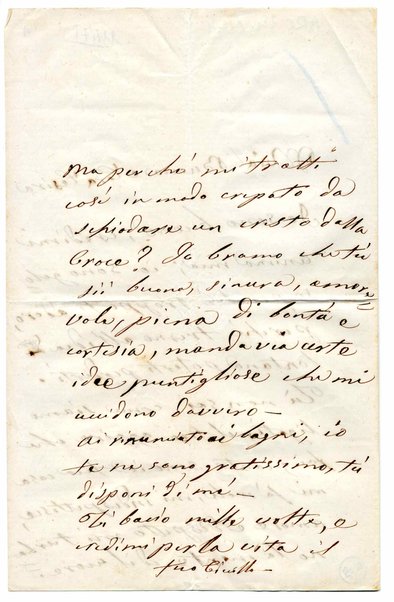 Ma perché mi tratti
così in modo crepato da
schiodare un cristo dalla
Croce? Io bramo che tú
sii buona, sincera, amore=
vole, piena di bontà e
cortesia, manda via certe
idee puntigliose che mi
uccidono davvero—
ai rinunciato ai bagni, io
te ne sono gratissimo, tú
disponi di mé—
Ti bacio mille volte, e
credimi per la vita il
tuo